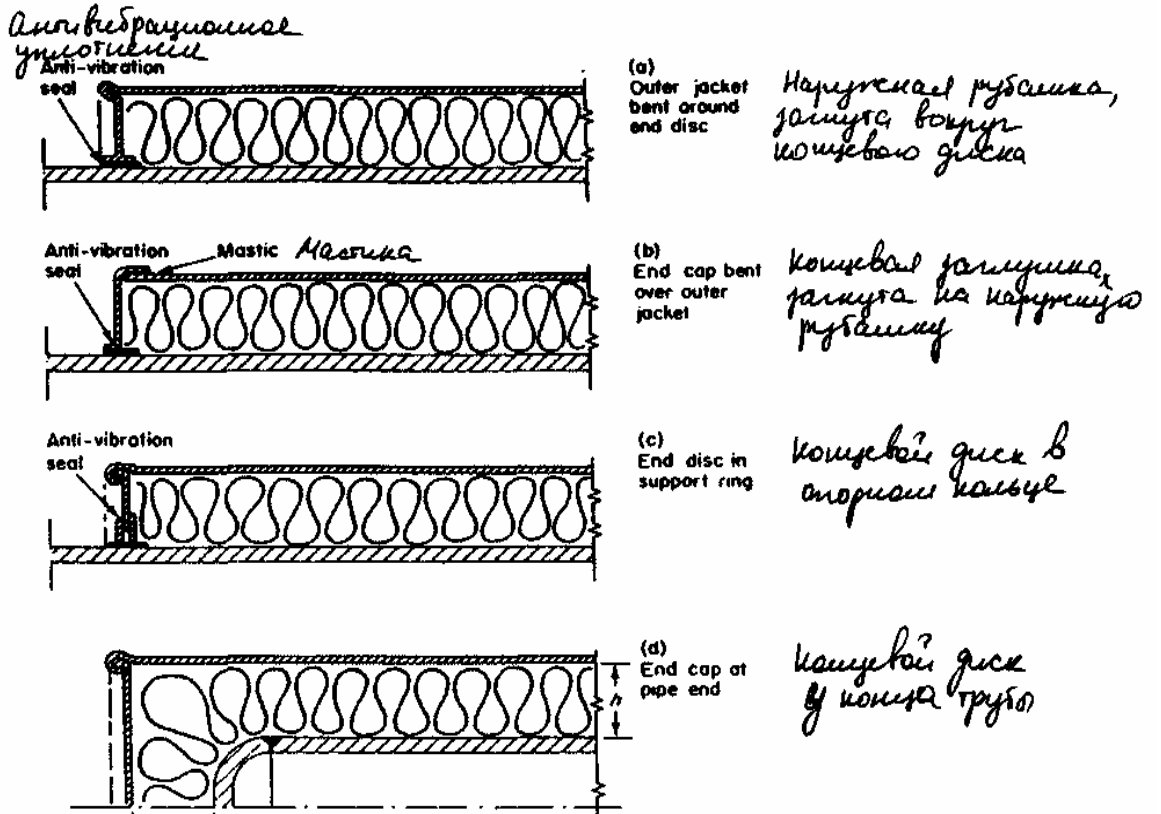 Антивибрационное
уплотнении
Anti-vibration
seal
(a)
Outer jacket
bent around
end disc
Наружная рубашка,
загнута вокруг
концевого диска
Anti-vibration
seal
Mastic Мастика
(b)
End cap bent
over outer
jacket
концевая заглушка,
загнута на наружную
рубашку
Anti-vibration
seal
(c)
End disc in
support ring
концевой диск в
опорном кольце
(d)
End cap at
pipe end
h
концевой диск
у конца трубы